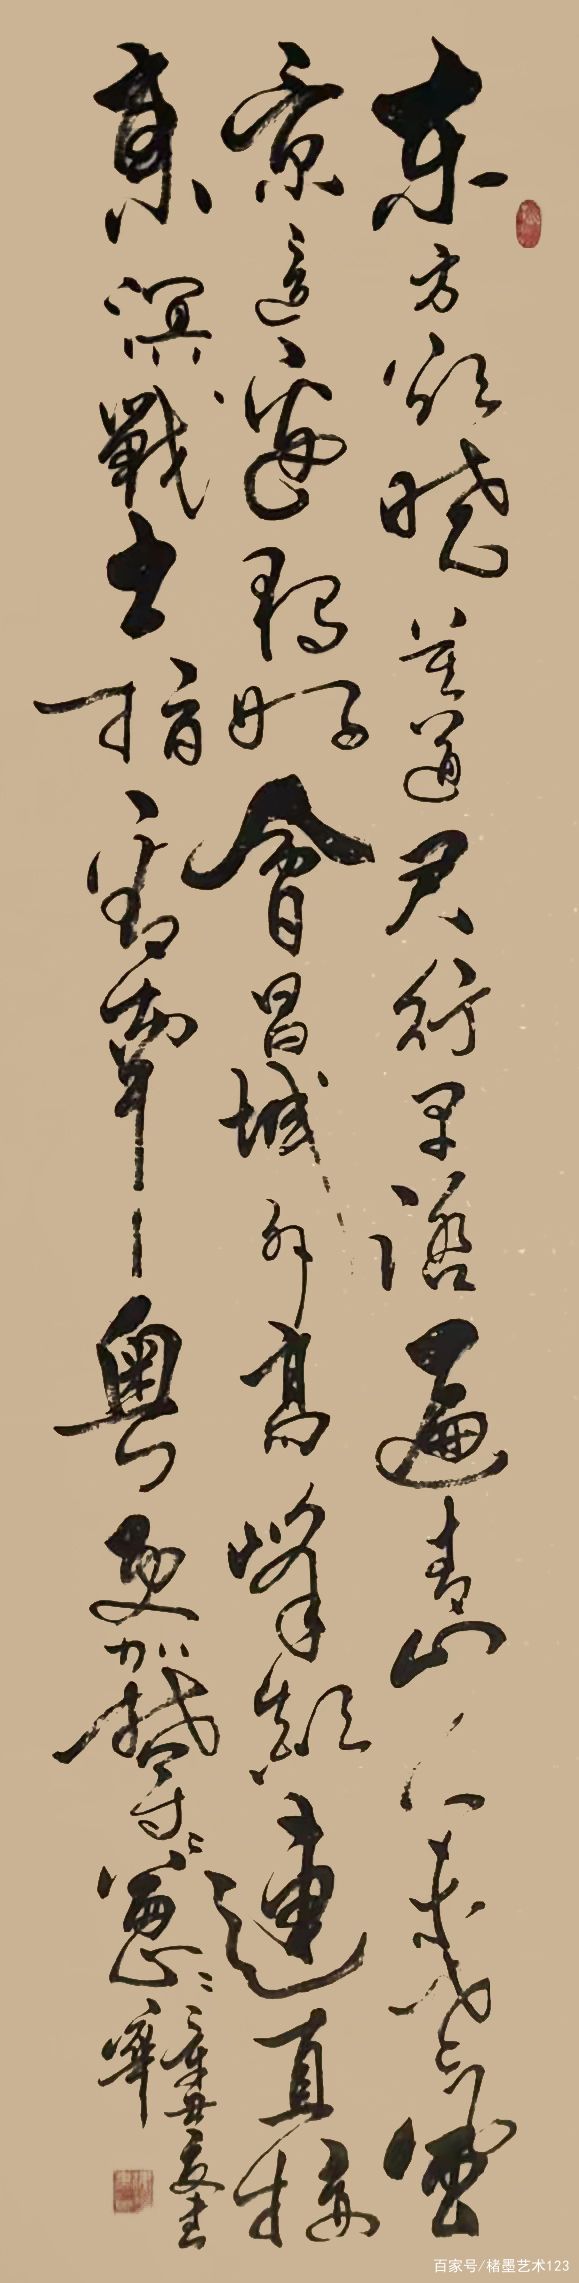 东方欲晓莫道君行早踏遍青山人未老風
景這邊独好會昌城外高峰颠連直接
東溟戰士指看南粤更加鬱〻葱〻
辛丑夏书
百家号/楮墨艺术123